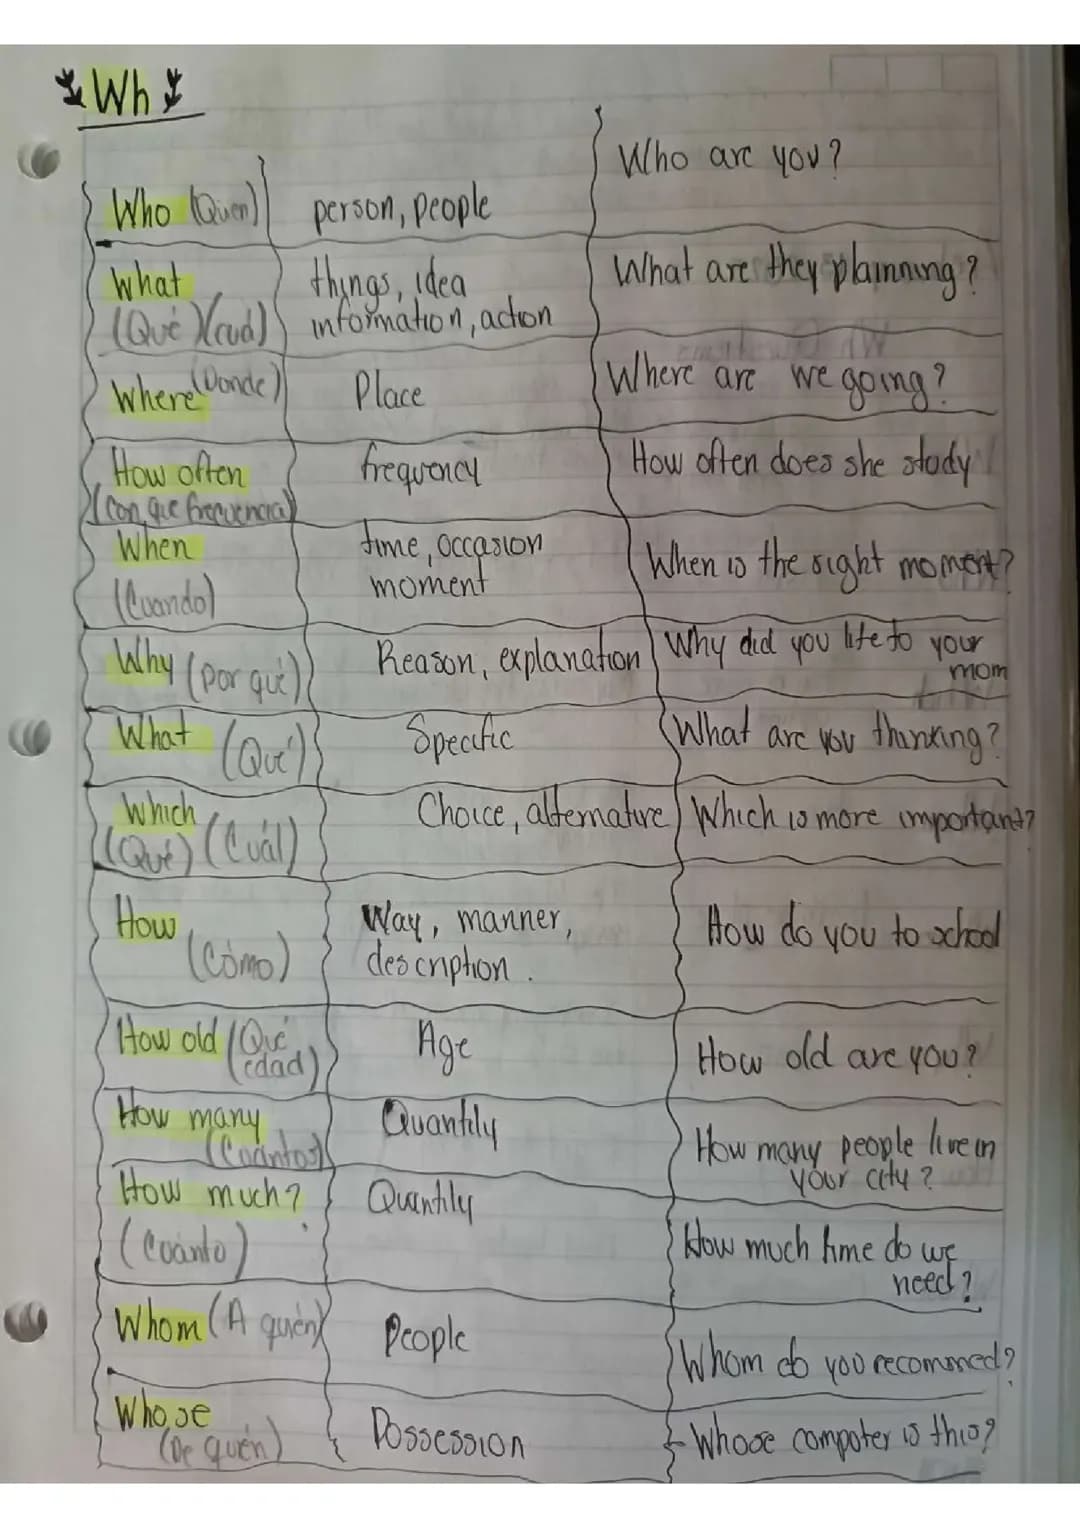 Wh
Who (Quien) person, people Who are you?
What things, idea What are they plainning?
(Qué)(cuál) information, action
Where (Donde) Place Where are we going?
How often frequency How often does she study
(Con que frecuencia)
When time, occasion When is the right moment?
(Cuando) moment
Why (por qué) Reason, explanation Why did you life to your
mom
What (Qué) Specific What are you thinking?
Which Choice, alternative Which is more important?
(Qué) (Cuál)
How Way, manner, How do you to school
(Cómo) description.
How old (Qué Age How old are you?
edad)
How many Quantily How many people live in
(Cuantos) your city?
How much? Quantily
(Cuánto) How much time do we
need?
Whom (A quién) People Whom do you recommed?
Whose Possession Whose computer is this?
(De quién)